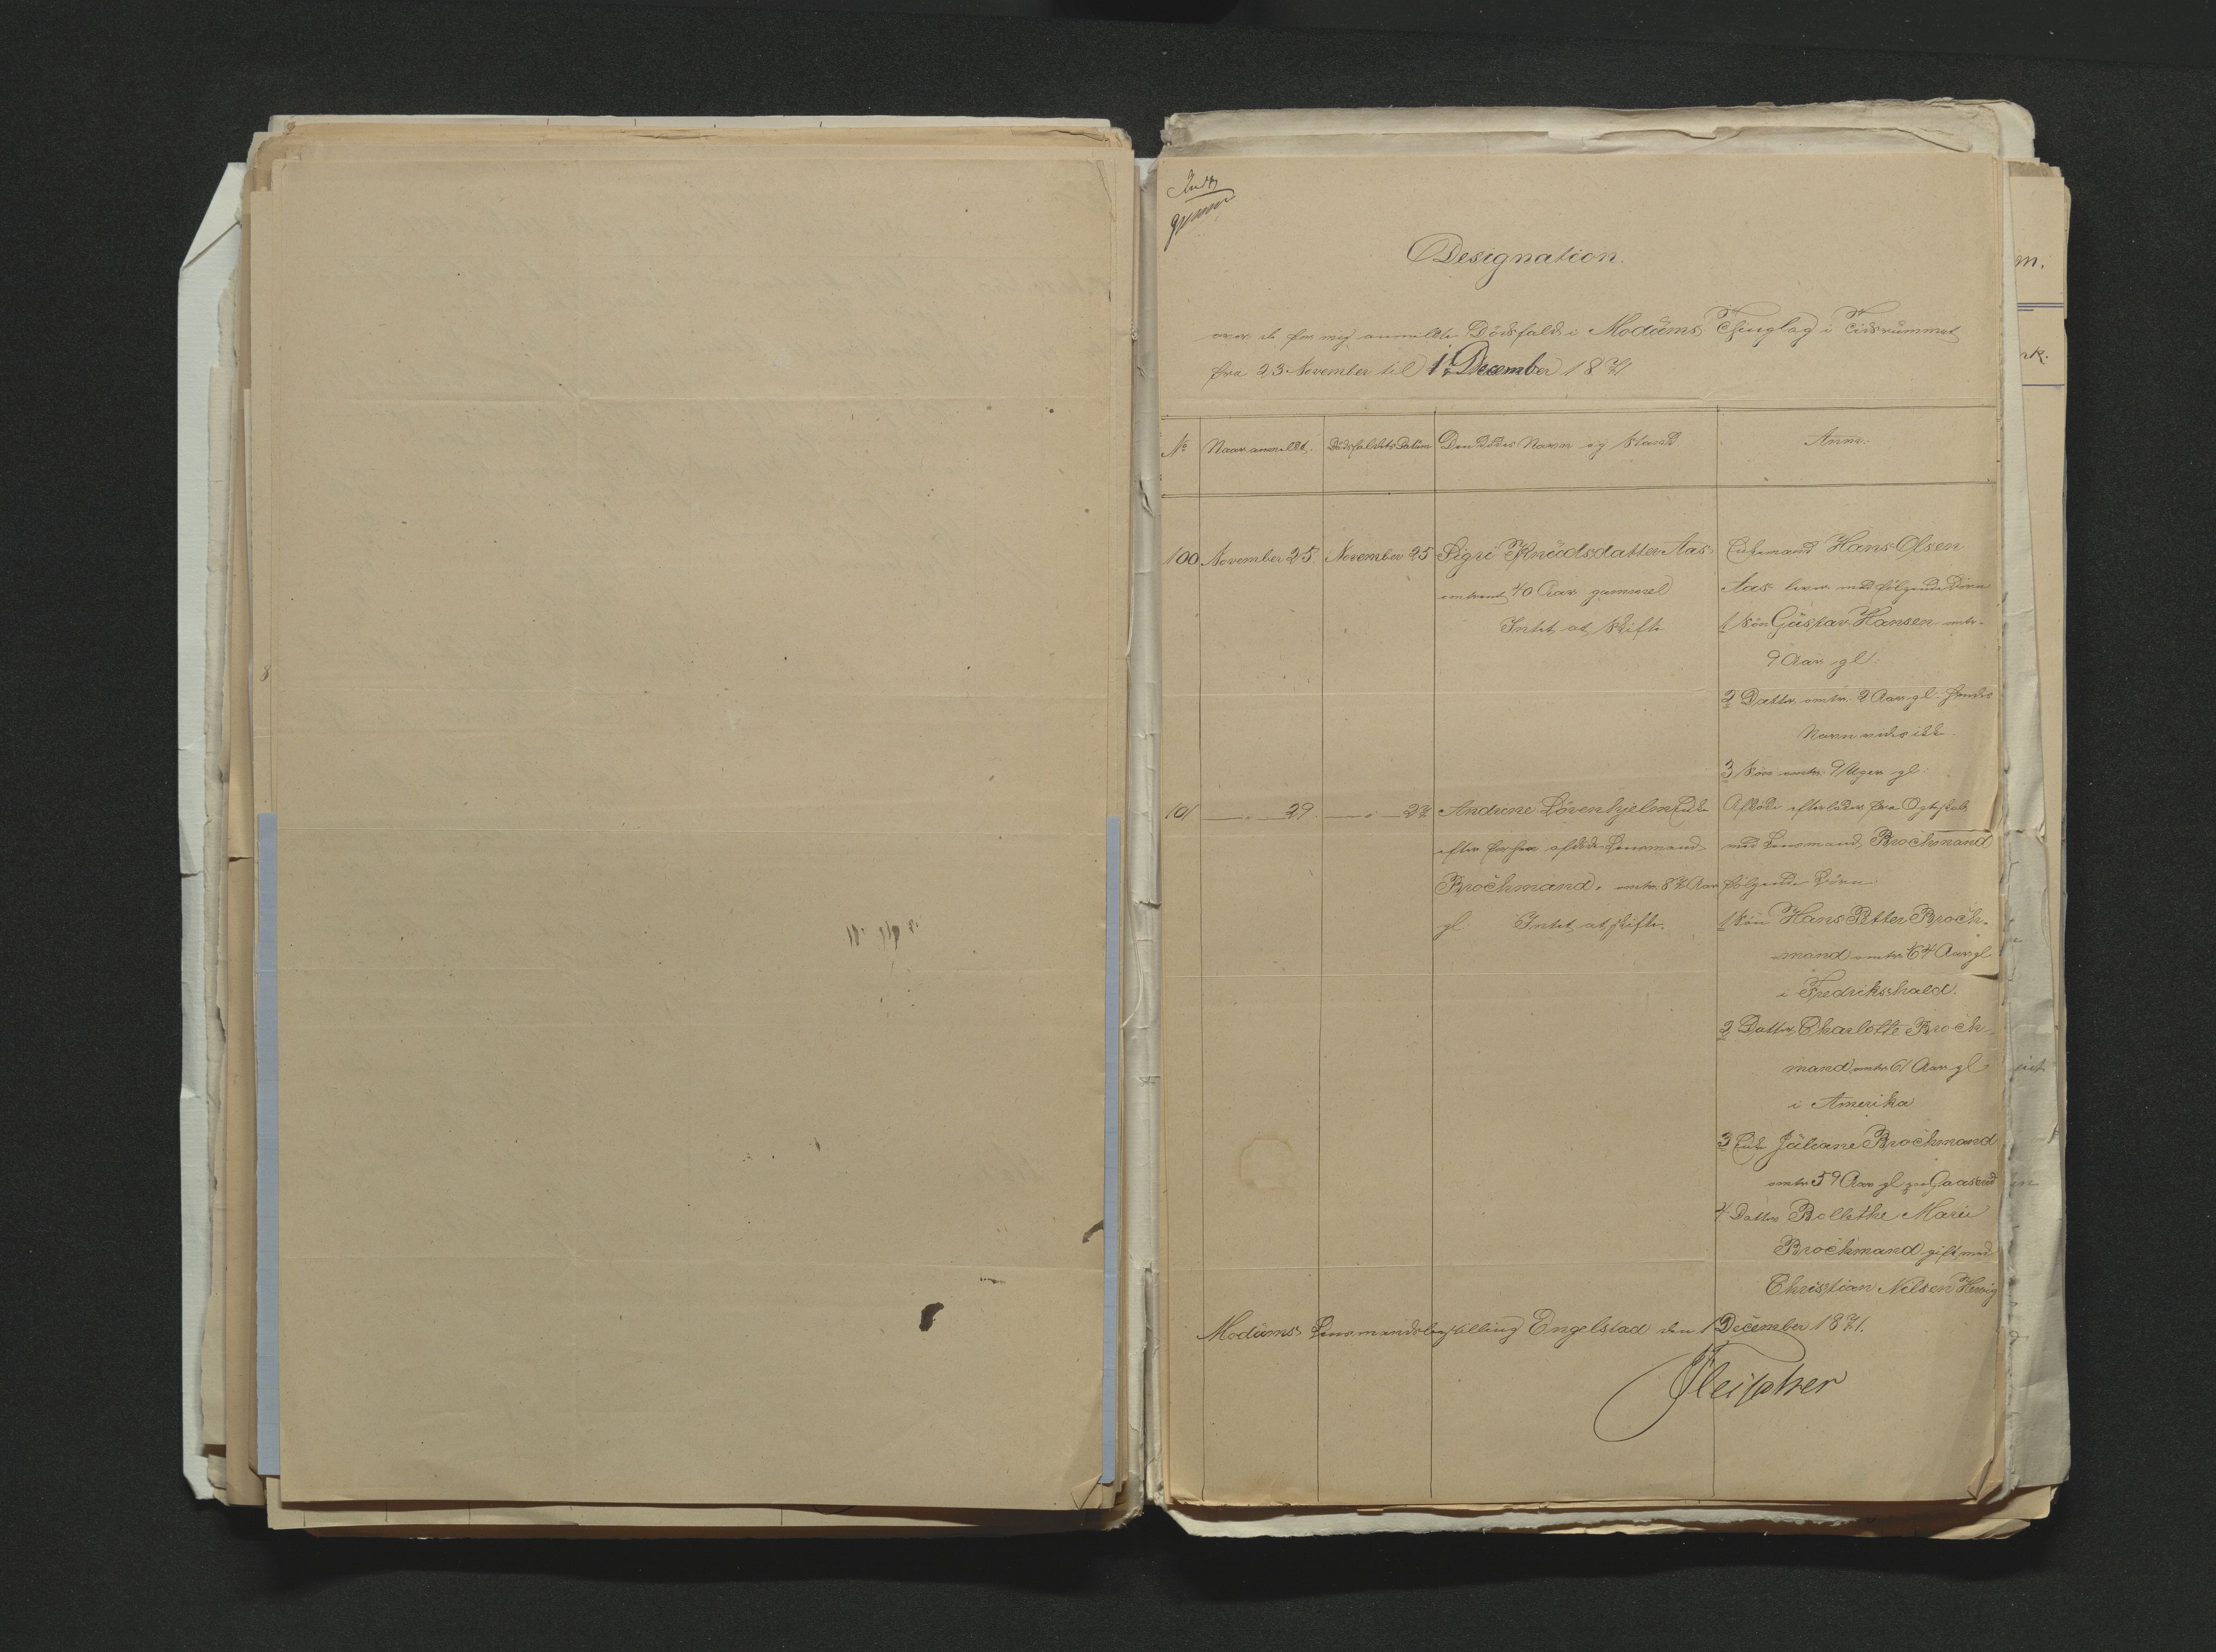 Designation.
over de for mig anmeldte Dödsfald i Modums Thinglag i Tidsrummet
fra 23 November til 1 December 1871
No Naar anmeldt. Dödsfaldets Datum Den Dödes Navn og Stand Anm:
100 November 25 November 25 Sigri Knudsdatter Aas
omtrent 40 Aar gammel
Intet at skifte
Enkemand Hans Olsen
Aas lever med følgende Börn
1 Sön Gustav Hansen omtr.
9 Aar gl:
2 Datter omtr. 2 Aar gl. hendes
Navn vides ikke
3 Sön omtr. 9 Uger gl:
101 —"— 29 —"— 27 Andrine Lövenhjelm Enke
efter forhen afdöde Lensmand
Brochmand, omtr. 87 Aar
gl. Intet at skifte.
Afdöde efterlader fra Ægteskab
med Lensmand Brochmand
følgende Börn:
1 Sön Hans Petter Broch-
mand omtr. 64 Aar gl
i Fredrikshald.
2 Datter Charlotte Broch-
mand omtr 61 Aar gl
i Amerika
3 Enke Juliane Brochmand
omtr 59 Aar gl paa Gaaserud
4 Datter Bollethe Marie
Brochmand gift med
Christian Nilsen
Modums Lensmandsbestilling Engelstad den 1 December 1871.
Fleischer